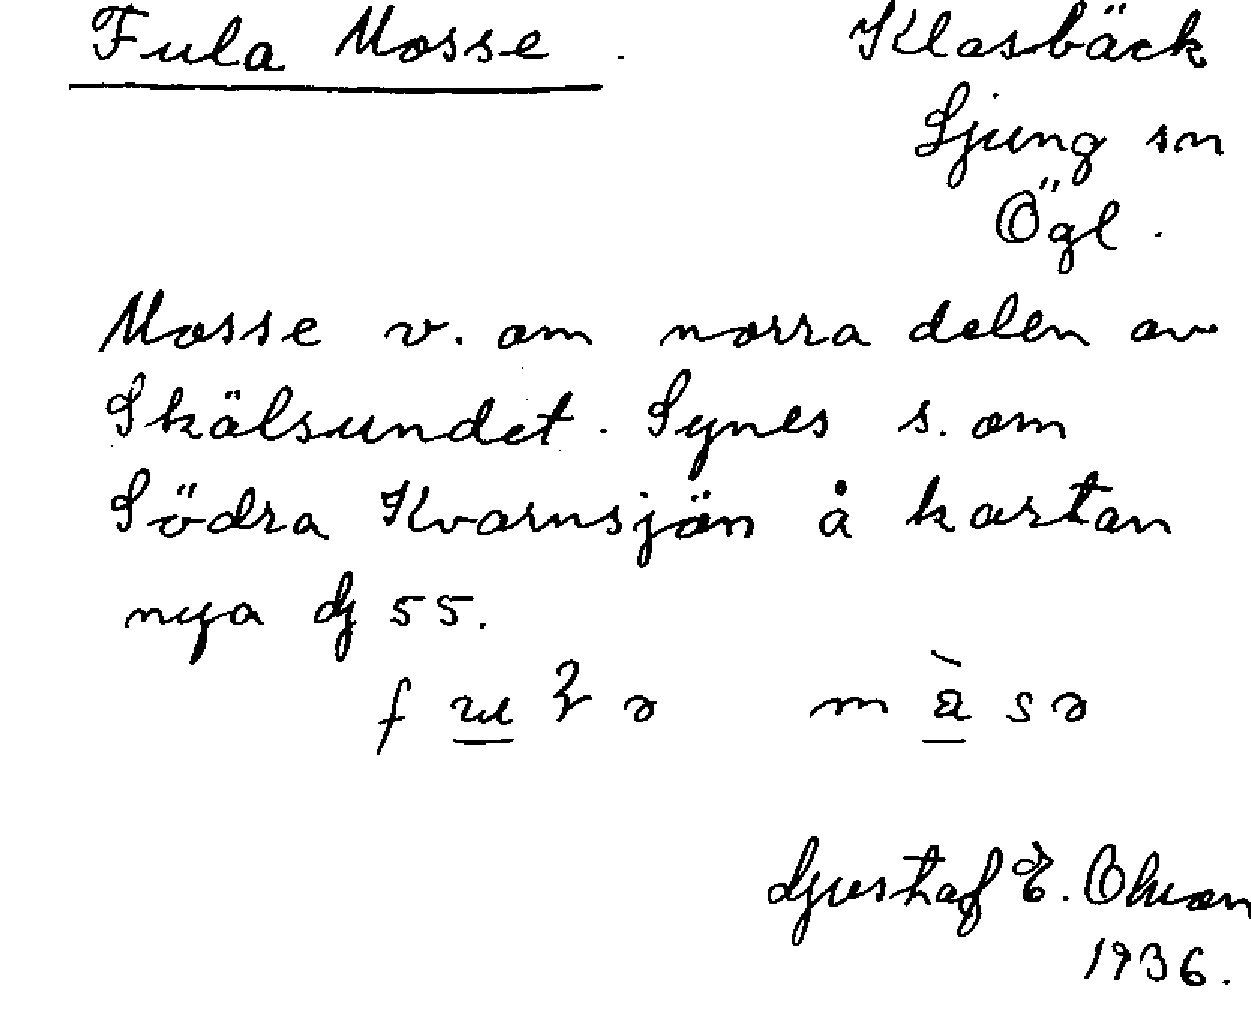 Fula Mosse. Klasbäck
Ljung sn
Ögl.
Mosse v. om norra delen av
Skälsundet. Synes s. om
Södra Kvarnsjön å kartan
nya G 55.
màsə
Gustaf E. Olsson
1936.